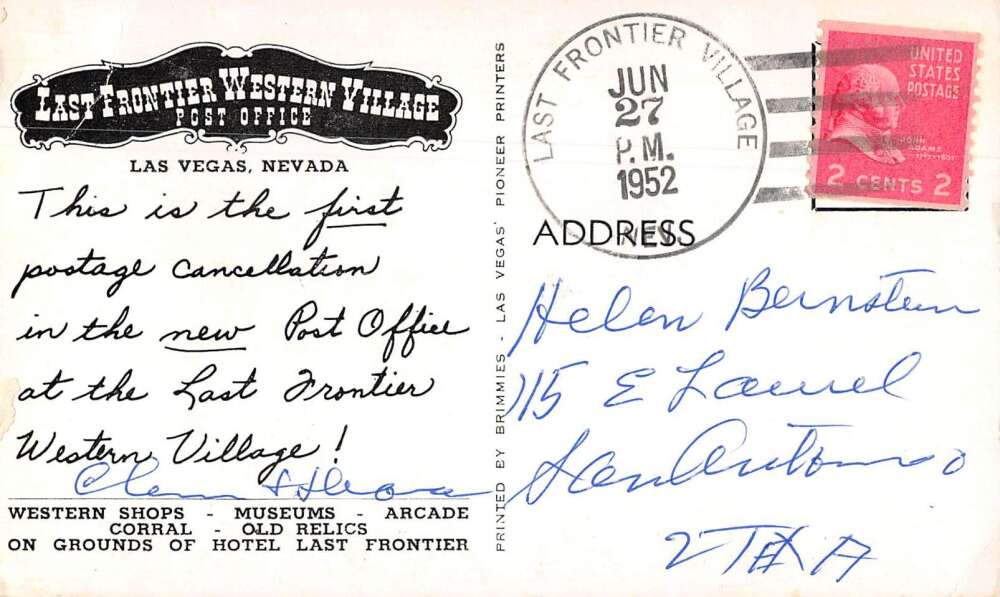 LAST FRONTIER WESTERN VILLAGE
POST OFFICE
LAS VEGAS, NEVADA
This is the first
postage cancellation
in the new Post Office
at the Last Frontier
Western Village!
WESTERN SHOPS - MUSEUMS - ARCADE
CORRAL - OLD RELICS
ON GROUNDS OF HOTEL LAST FRONTIER
PRINTED BY BRIMMIES - LAS VEGAS' PIONEER PRINTERS
LAST FRONTIER VILLAGE
JUN
27
P.M.
1952
NEV.
UNITED
STATES
POSTAGE
JOHN
ADAMS
2 CENTS 2
ADDRESS
Helen Bernstein
115 E Laurel
San Antonio
2